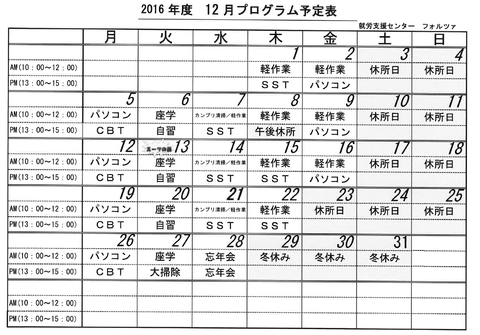 2016 年度　12 月プログラム予定表
就労支援センター　フォルツァ
月 火 水 木 金 土 日
1 2 3 4
AM(10：00～12：00) 軽作業 軽作業 休所日 休所日
PM(13：00～15：00) ＳＳＴ パソコン
5 6 7 8 9 10 11
AM(10：00～12：00) パソコン 座学 カンプリ清掃／軽作業 軽作業 軽作業 休所日 休所日
PM(13：00～15：00) ＣＢＴ 自習 ＳＳＴ 午後休所 パソコン
12 13 14 15 16 17 18
AM(10：00～12：00) パソコン 座学 カンプリ清掃／軽作業 軽作業 軽作業 休所日 休所日
PM(13：00～15：00) ＣＢＴ 自習 ＳＳＴ ＳＳＴ パソコン
19 20 21 22 23 24 25
AM(10：00～12：00) パソコン 座学 カンプリ清掃／軽作業 軽作業 休所日 休所日 休所日
PM(13：00～15：00) ＣＢＴ 自習 ＳＳＴ ＳＳＴ
26 27 28 29 30 31
AM(10：00～12：00) パソコン 座学 忘年会 冬休み 冬休み 冬休み
PM(13：00～15：00) ＣＢＴ 大掃除 忘年会
AM(10：00～12：00)
PM(13：00～15：00)